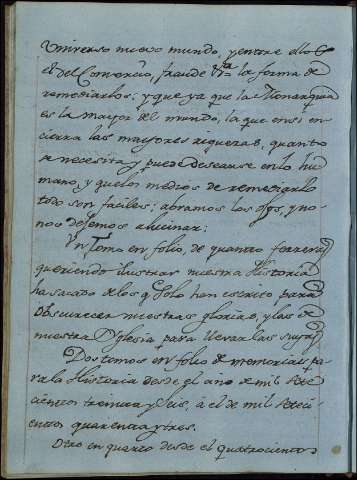 Universo nuevo mundo, y entre ello
el del Comercio, fraude la forma de
remediarlos: y que ya que la Monarquia
es la mayor del mundo, la que en si en
cierra las mayores riquezas, quanto
se necesita y puede desearse en lo hu
mano, y que los medios de remediarlo
todo son faciles: abramos los ojos, y no
nos dejemos alucinar:
Un Tomo en folio, de quanto
queriendo ilustrar nuestra Historia
ha sacado de los q. solo han escrito para
obscurecer nuestras glorias, y las de
nuestra Yglesia para llevar las suyas
Dos tomos en folio de memorias pa
ra la Historia desde el año de mil sete
cientos treinta y seis, á el de mil seteci
entos quarenta y tres.
Otro en quarto desde el quatrocientos